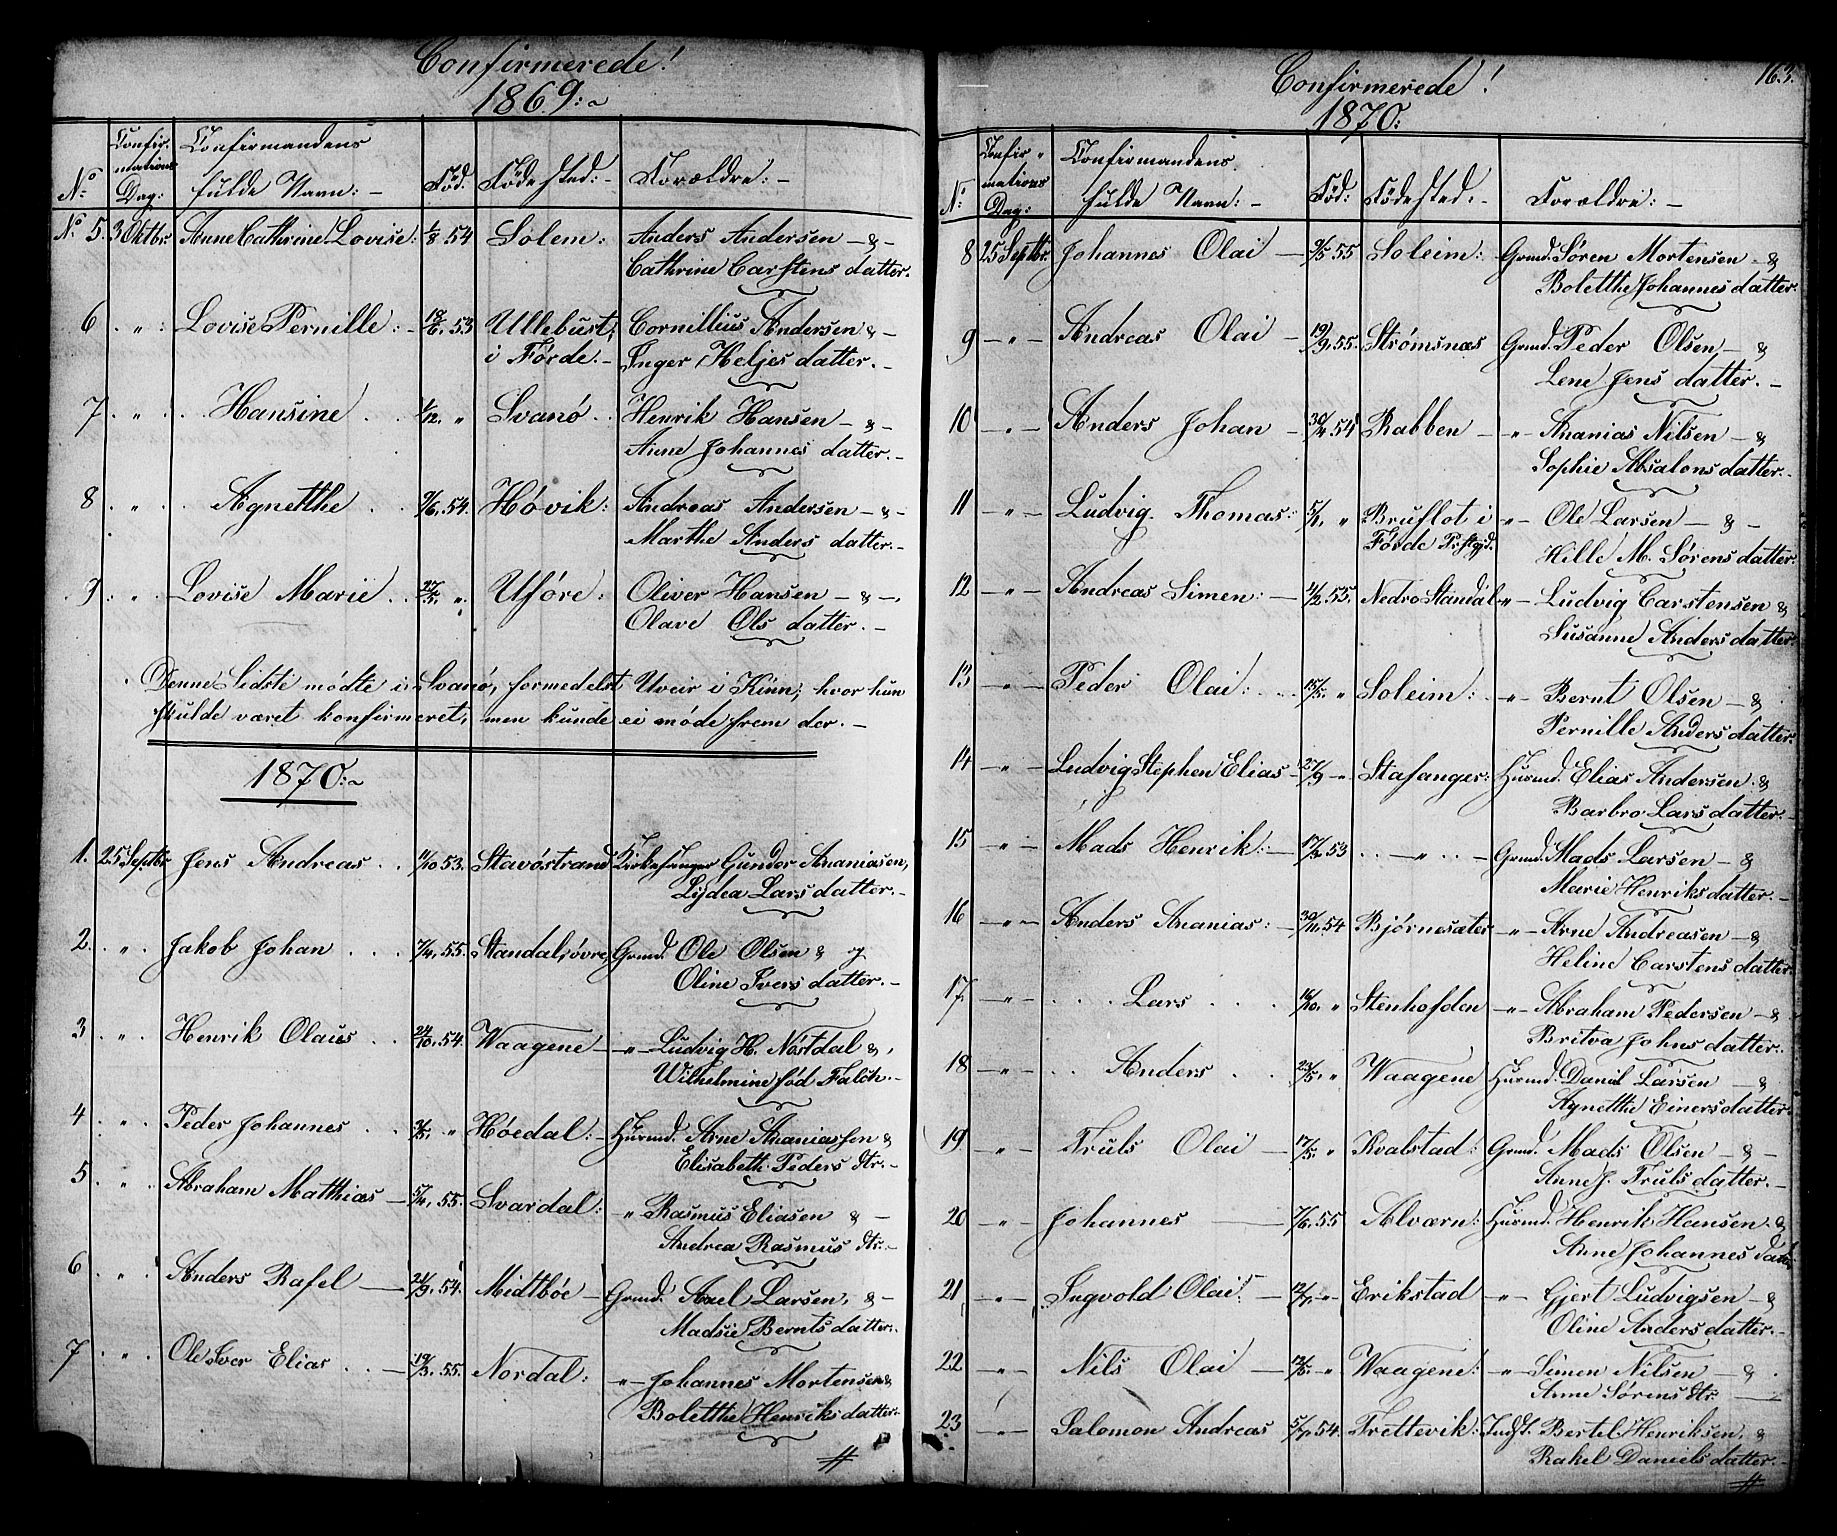 Confirmerede!
1869:~
No: Confirmations Dag: Confirmandens fulde Navn: - Fød. Fødested: - Forældre: -
No 5. 3 Oktbr. Anne Cathrine Lovise: 1/8 54 Solem: Anders Andersen - & -
Cathrine Carstens datter.
6 . „ : Lovise Pernille: - 18/6. 53 Ullebust, Cornillius Andersen & -
i Førde. - Inger Heljes datter. -
7 . „ . Hansine . . 1/12. „ Svanö . Henrik Hansen - & -
Anne Johannes datter. -
8 . „ . . Agnetthe . . 9/6. 54. Hövik: Andreas Andersen - & -
Marthe Anders datter. -
9 . „ . Lovise Marie . . 27/5. „ Uföre: Oliver Hansen - & -
Olave Ols datter. -
Denne Sidste mödte i Svanö, formedelst Uveir i Kinn, hvor hun
skulde været konfirmeret, men kunde ei möde frem der. -
1870:~
1. 25 Septbr. Jens Andreas . . 11/10 53. Stavöstrand Kirkesanger Gunder Ananiasen,
Lydea Lars datter. -
2. . „ . Jakob Johan . . . 7/4. 55. Standal, övre, Grmd. Ole Olsen & og
Oline Ivers datter. -
3 . „ . Henrik Olaus . . 24/10. 54. Waagene - „ - Ludvig H. Nöstdal &,
Wilhelmine fød Falch. -
4 . „ . Peder Johannes . . „ Höedal: - Husmd. Arne Ananiassen &
Elisabeth Peders dtr. -
5 . „ . Abraham Matthias - 5/4. 55. Svardal: „ Rasmus Eliasen & -
Andrea Rasmus dtr. -
6 . „ . Anders Rafel - 21/9. 54. Midtböe - Grmd. Axel Larsen, & -
Madsie Bernts datter.
7 . „ . Ole Iver Elias . . - 19/3. 55. Nordal: „ Johannes Mortensen &
Boletthe Henriks datter. -
#
163.
Confirmerede!
1870:
No: Confirmations Dag: Confirmandens fulde Navn: - Fød: Fødested. - Forældre: -
8 25 Septbr. Johannes Olai - 9/5 55 Soleim: Grmd. Søren Mortensen - &
Boletthe Johannes datter.
9 - „ - Andreas Olai - 19/9. 55. Strømsnæs Grmd. Peder Olsen - &
Lene Jens datter. -
10 - „ - Anders Johan - 30/11 54 Rabben - „ - Ananias Nilsen - &
Sophie Absalons datter. -
11 - „ - Ludvig Thomas: 5/1. „ Bruflot i „ - Ole Larsen - & -
Førde Prstgjd. Hille M. Sørens datter.
12 - „ - Andreas Simen: - 4/2 55. Nedre Standal „ - Ludvig Carstensen &
Susanne Anders datter.
13 - „ - Peder Olai: . . 15/5. „ Soleim: . „ - Bernt Olsen - &
Pernille Anders datter.
14 - „ - Ludvig Stephen Elias - 27/9 „ - Stafanger: Husmd. Elias Andersen. &
Barbro Lars datter. -
15 - „ - Mads Henrik: - 17/3 53 . . - „ - . - Grmd. Mads Larsen - &
Marie Henriks datter. -
16 - „ - Anders Ananias: - 30/11. 54 Bjørnesæter - „ - Arne Andreasen - &
Heline Carstens datter.
17 - „ - . . . Lars . . . 16/10. „ Stenhofden - „ - Abraham Pedersen - &
Britva Johns datter. -
18 - „ - . . Anders . . 23/5. „ Waagene Husmd. Daniel Larsen - &
Agnetthe Einers datter.
19 - „ - Truls Olai - 17/5. „ Kvalstad: Grmd. Mads Olsen - & -
Anne J. Truls datter. -
20 - „ - Johannes - 7/6. 55 Alværn: Husmd. Henrik Hansen. &
Anne Johannes datter
21 - „ - Ingvold Olai: - 12/7. „ - Erikstad - „ - Gjert Ludvigsen - &
Oline Anders datter. -
22 - „ - Nils Olai - 12/8. „ Waagene: - „ - Simen Nilsen - & .
Anne Sørens dtr. -
23 - „ - Salomon Andreas 5/7. 54. Trettevik: Indst. Bertel Henriksen, &
Rakel Daniels datter. -
#